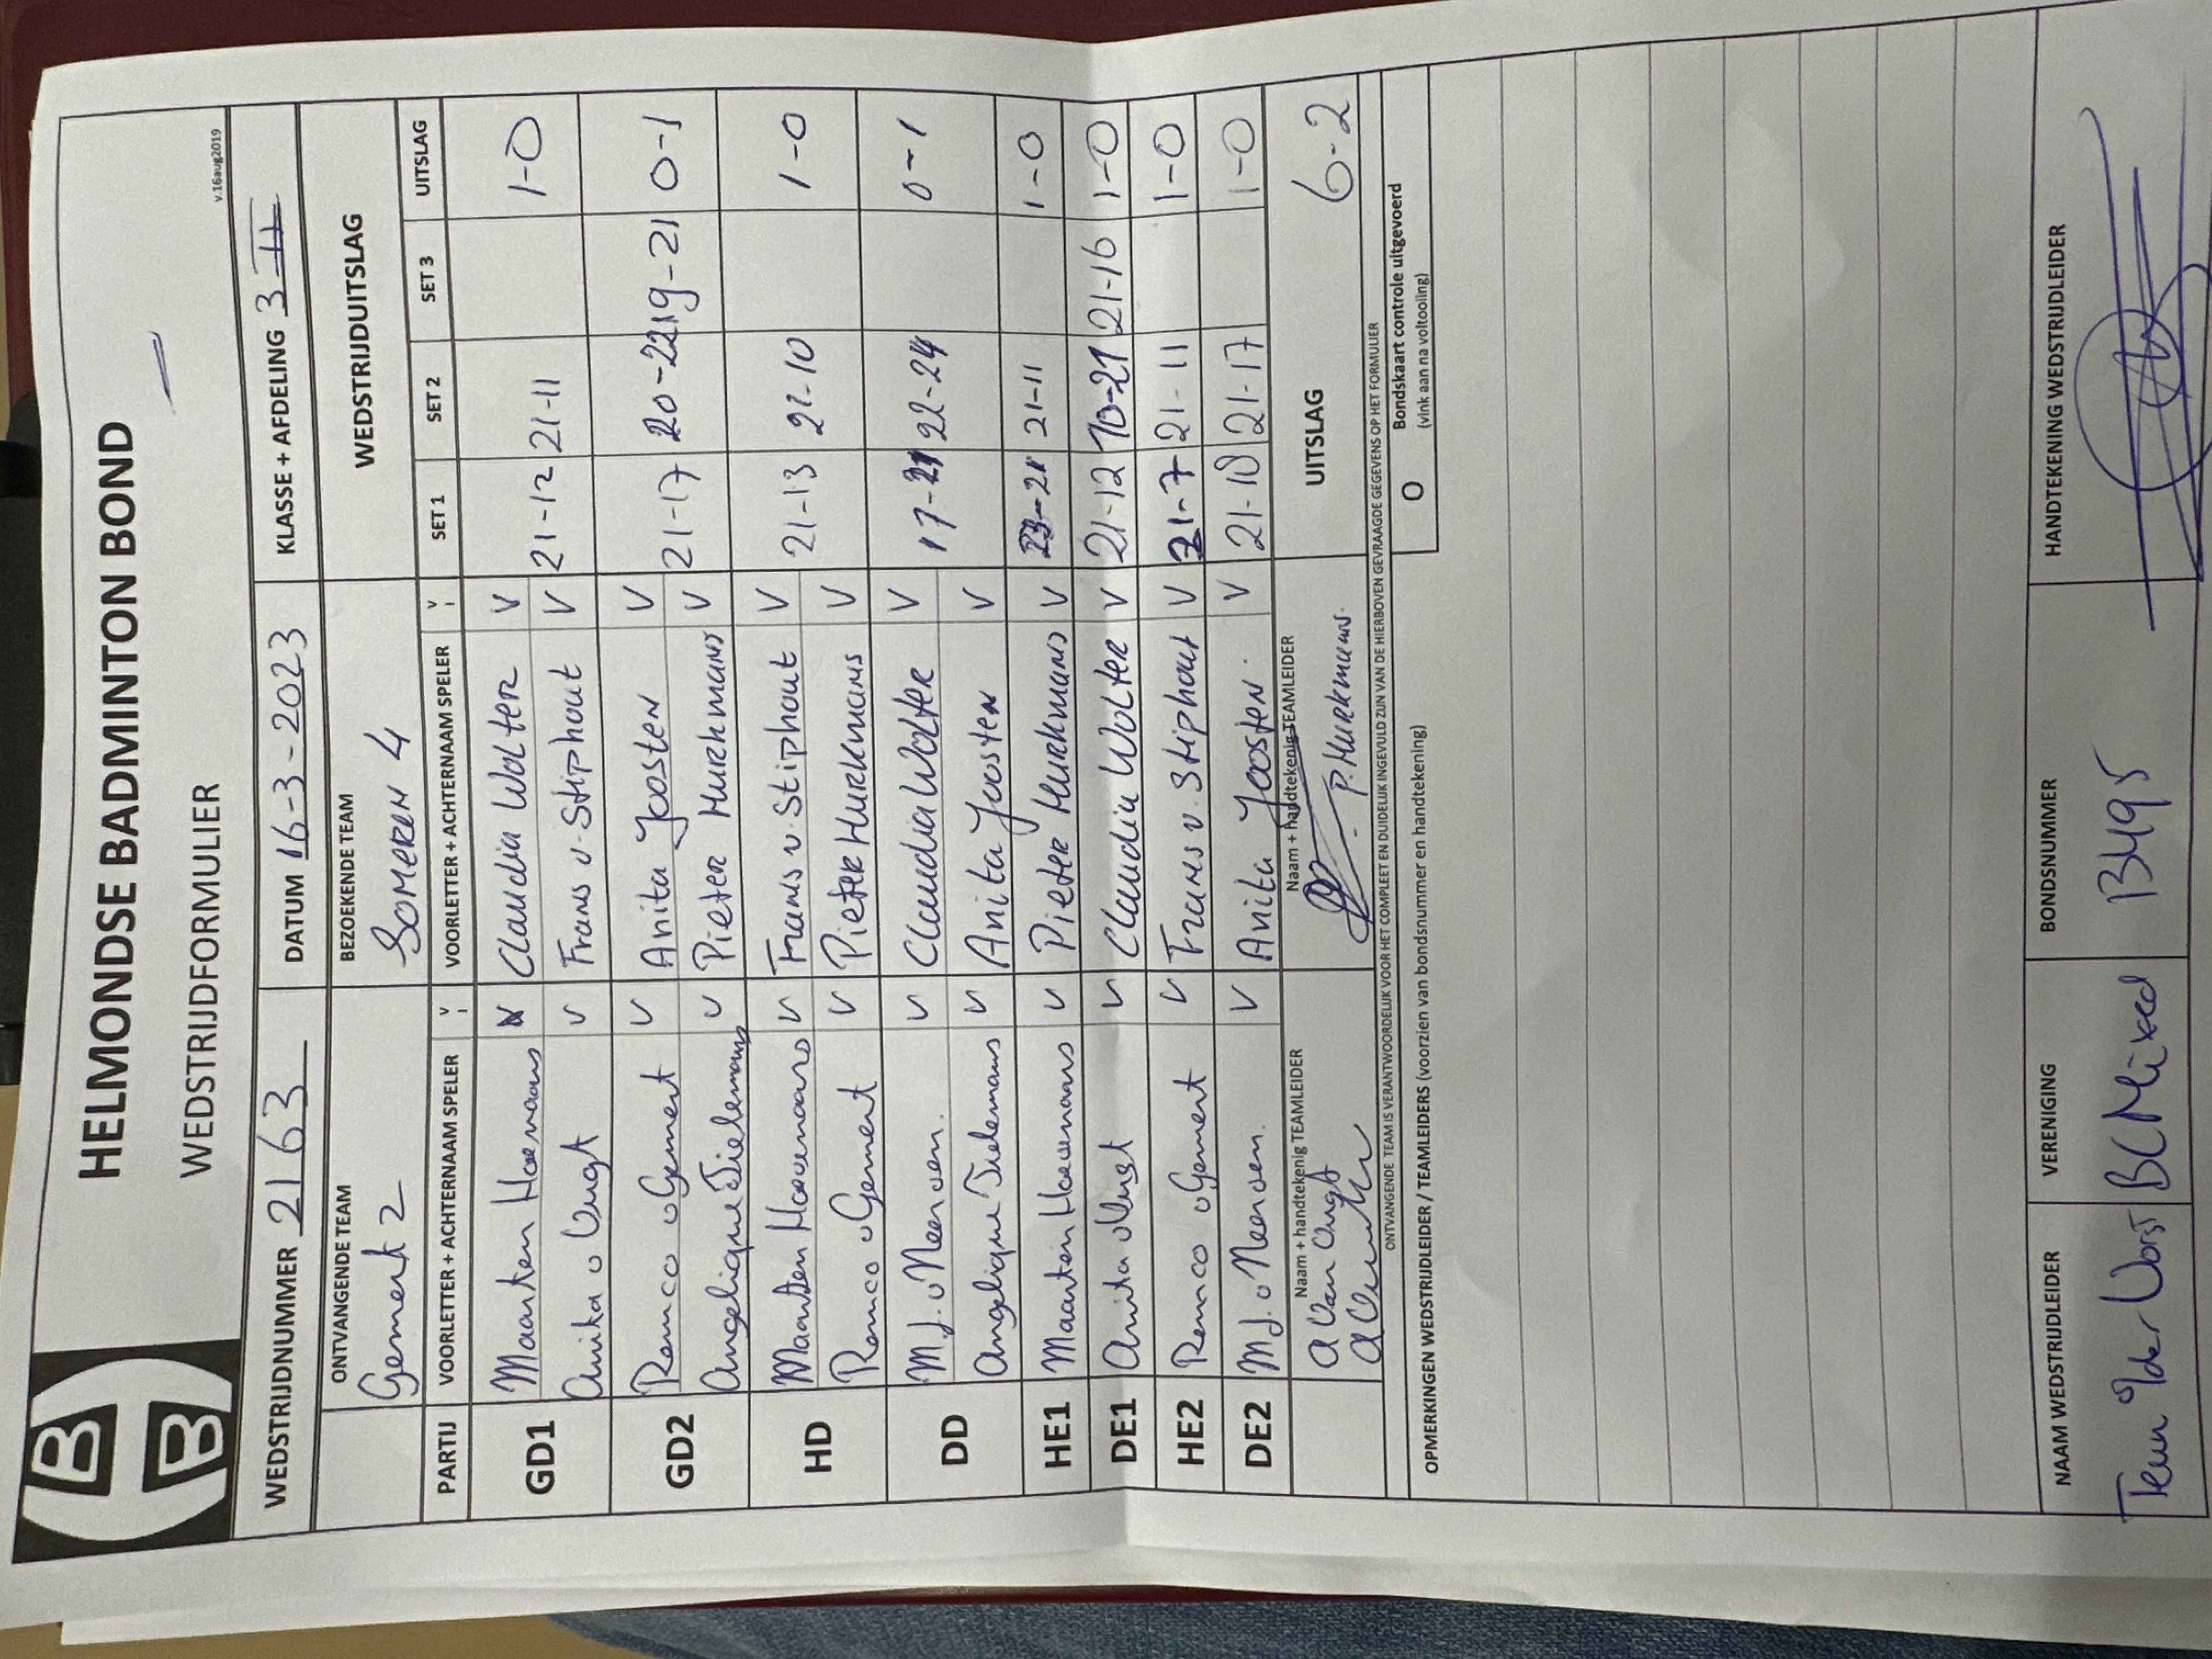 HELMONDSE BADMINTON BOND
WEDSTRIJDFORMULIER
v.16aug2019
WEDSTRIJDNUMMER 2163 DATUM 16-3-2023 KLASSE + AFDELING 3
ONTVANGENDE TEAM BEZOEKENDE TEAM WEDSTRIJDUITSLAG
Gemert 2 SOMEREN 4
PARTIJ VOORLETTER + ACHTERNAAM SPELER V VOORLETTER + ACHTERNAAM SPELER V SET 1 SET 2 SET 3 UITSLAG
GD1 Maarten Hoevenaars V Claudia WoLTER V
Anita v Vugt V Frans v. Stiphout V 21-12 21-11 1-0
GD2 Remco v Gemert V Anita Joosten V
Angelique Tielemans V Pieter Hurkmans V 21-17 20-22 19-21 0-1
HD Maarten Hoevenaars V Frans v. Stiphout V
Remco v Gemert V Pieter Hurkmans V 21-13 21-10 1-0
DD M.J. v Neerven. V Claudia Wolter V
Angelique Tielemans V Anita Joosten V 17-21 22-24 0-1
HE1 Maarten Hoevenaars V Pieter Hurkmans V 23-21 21-11 1-0
DE1 Anita v Vugt V Claudia Wolter V 21-12 10-21 21-16 1-0
HE2 Remco v Gemert V Frans v. Stiphout V 21-7 21-11 1-0
DE2 M.J. v Neerven. V Anita Joosten. V 21-10 21-17 1-0
Naam + handtekenig TEAMLEIDER Naam + handtekenig TEAMLEIDER UITSLAG 6-2
A Van Vugt P. Hurkmans.
ONTVANGENDE TEAM IS VERANTWOORDELIJK VOOR HET COMPLEET EN DUIDELIJK INGEVULD ZIJN VAN DE HIERBOVEN GEVRAAGDE GEGEVENS OP HET FORMULIER
OPMERKINGEN WEDSTRIJDLEIDER / TEAMLEIDERS (voorzien van bondsnummer en handtekening) O Bondskaart controle uitgevoerd
(vink aan na voltooling)
NAAM WEDSTRIJDLEIDER VERENIGING BONDSNUMMER HANDTEKENING WEDSTRIJDLEIDER
Teun v/der Vorst BC Mixed B495